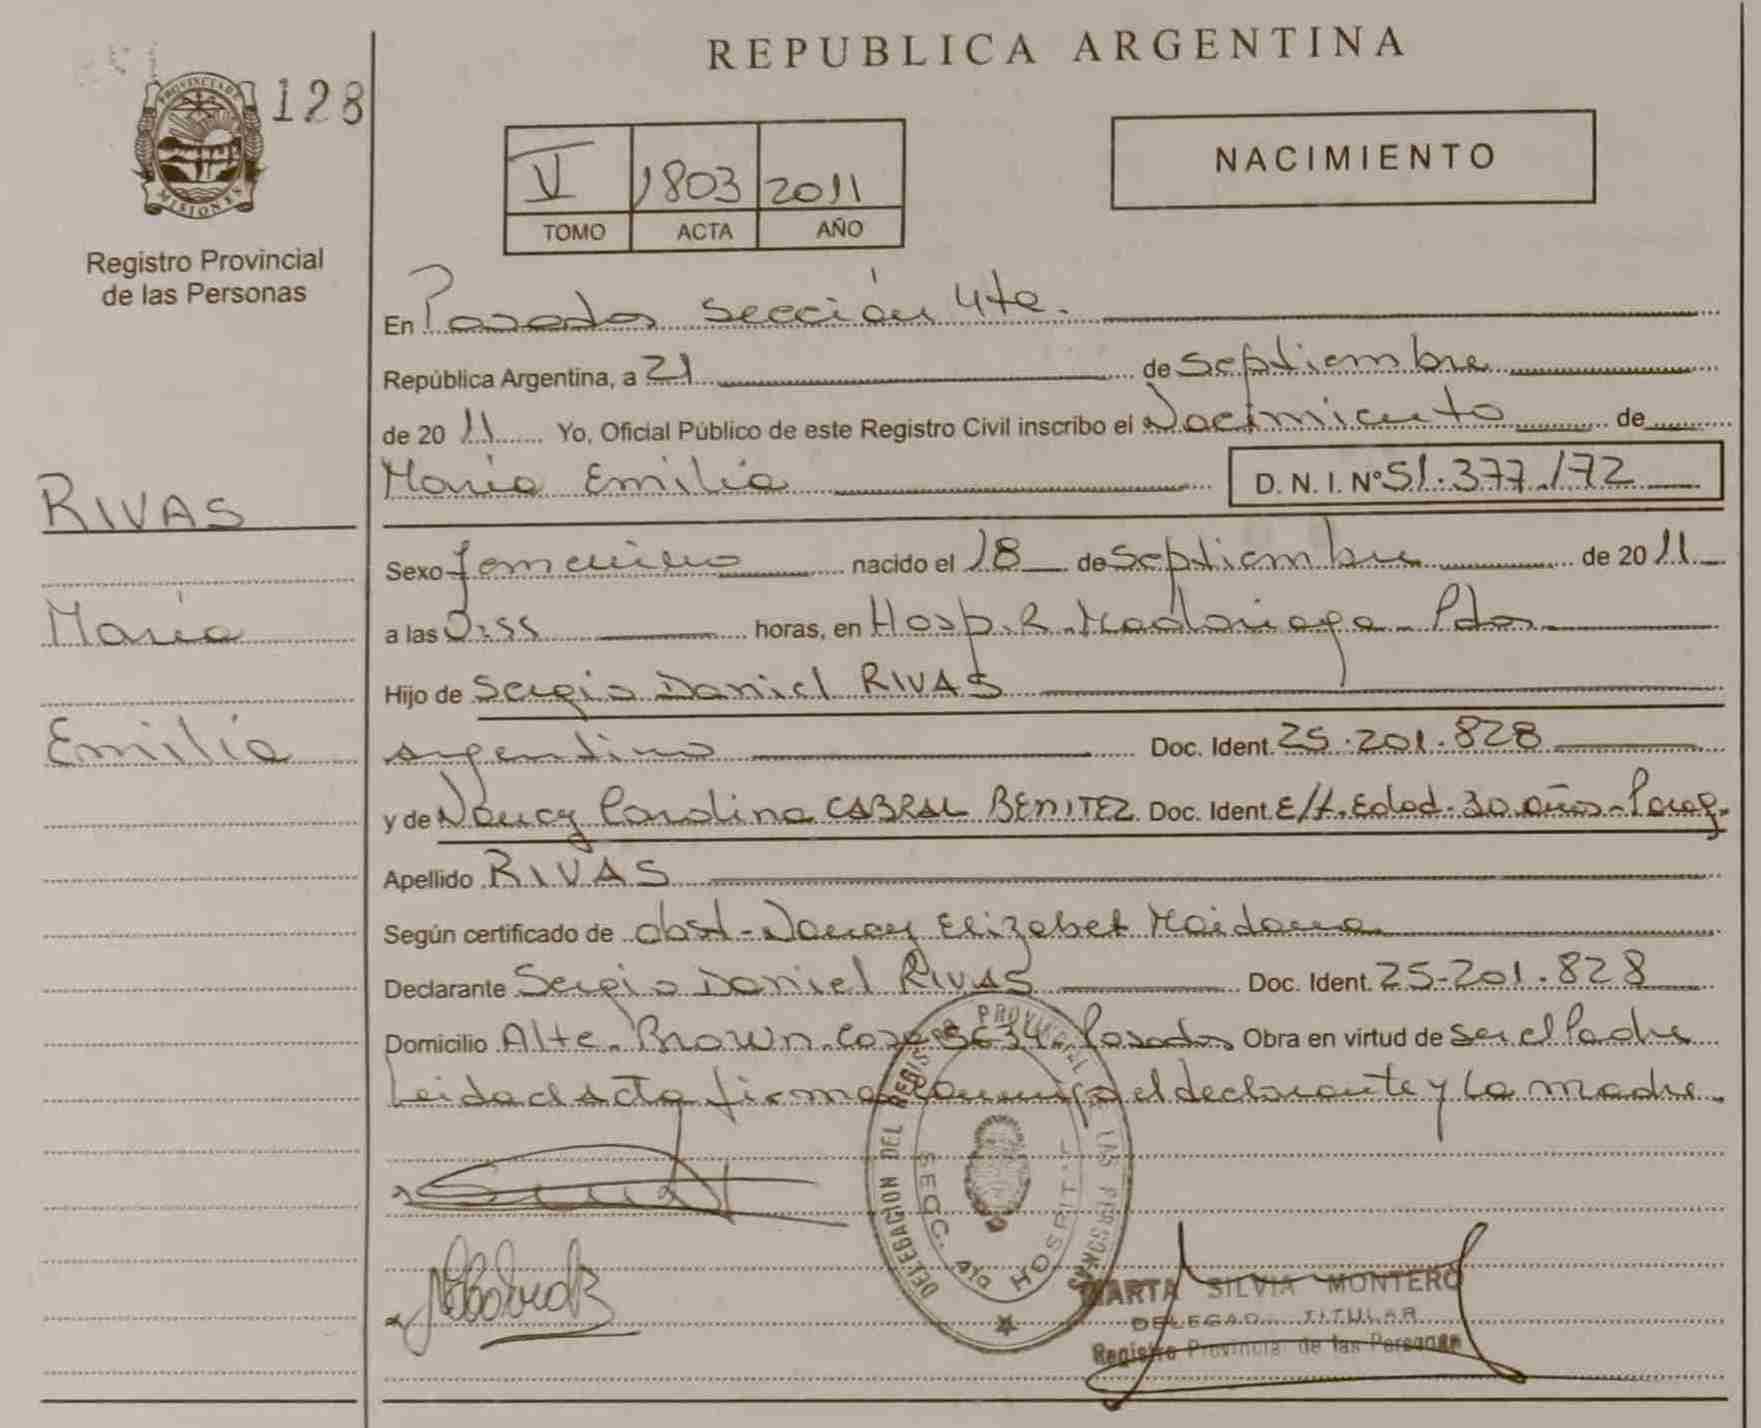 REPUBLICA ARGENTINA
PROVINCIA DE
MISIONES
128
Registro Provincial
de las Personas
V 1803 2011
TOMO ACTA AÑO
NACIMIENTO
En Posadas sección 4ta.
República Argentina, a 21 de Septiembre
de 2011 Yo, Oficial Público de este Registro Civil inscribo el Nacimiento de
María Emilia D. N. I. Nº 51.377.172
RIVAS
María
Emilia
Sexo femenino nacido el 18 de Septiembre de 2011
a las 0:55 horas, en Hosp. R. Madariaga - Pdas
Hijo de Sergio Daniel RIVAS
argentino Doc. Ident. 25.201.828
y de Nancy Carolina CABRAL BENITEZ Doc. Ident. Edad. 30 años - Parag.
Apellido RIVAS
Según certificado de obst - Nancy Elizabet Maidana
Declarante Sergio Daniel RIVAS Doc. Ident. 25-201.828
Domicilio Alte. Brown casa 5634 - Posadas Obra en virtud de ser el Padre
Leida el Acta firma conmigo el declarante y la madre.
DELEGACION DEL REGISTRO PROVINCIAL DE LAS PERSONAS
SECC. 4ta HOSPITAL
MARTA SILVIA MONTERO
DELEGADA TITULAR
Registro Provincial de las Personas